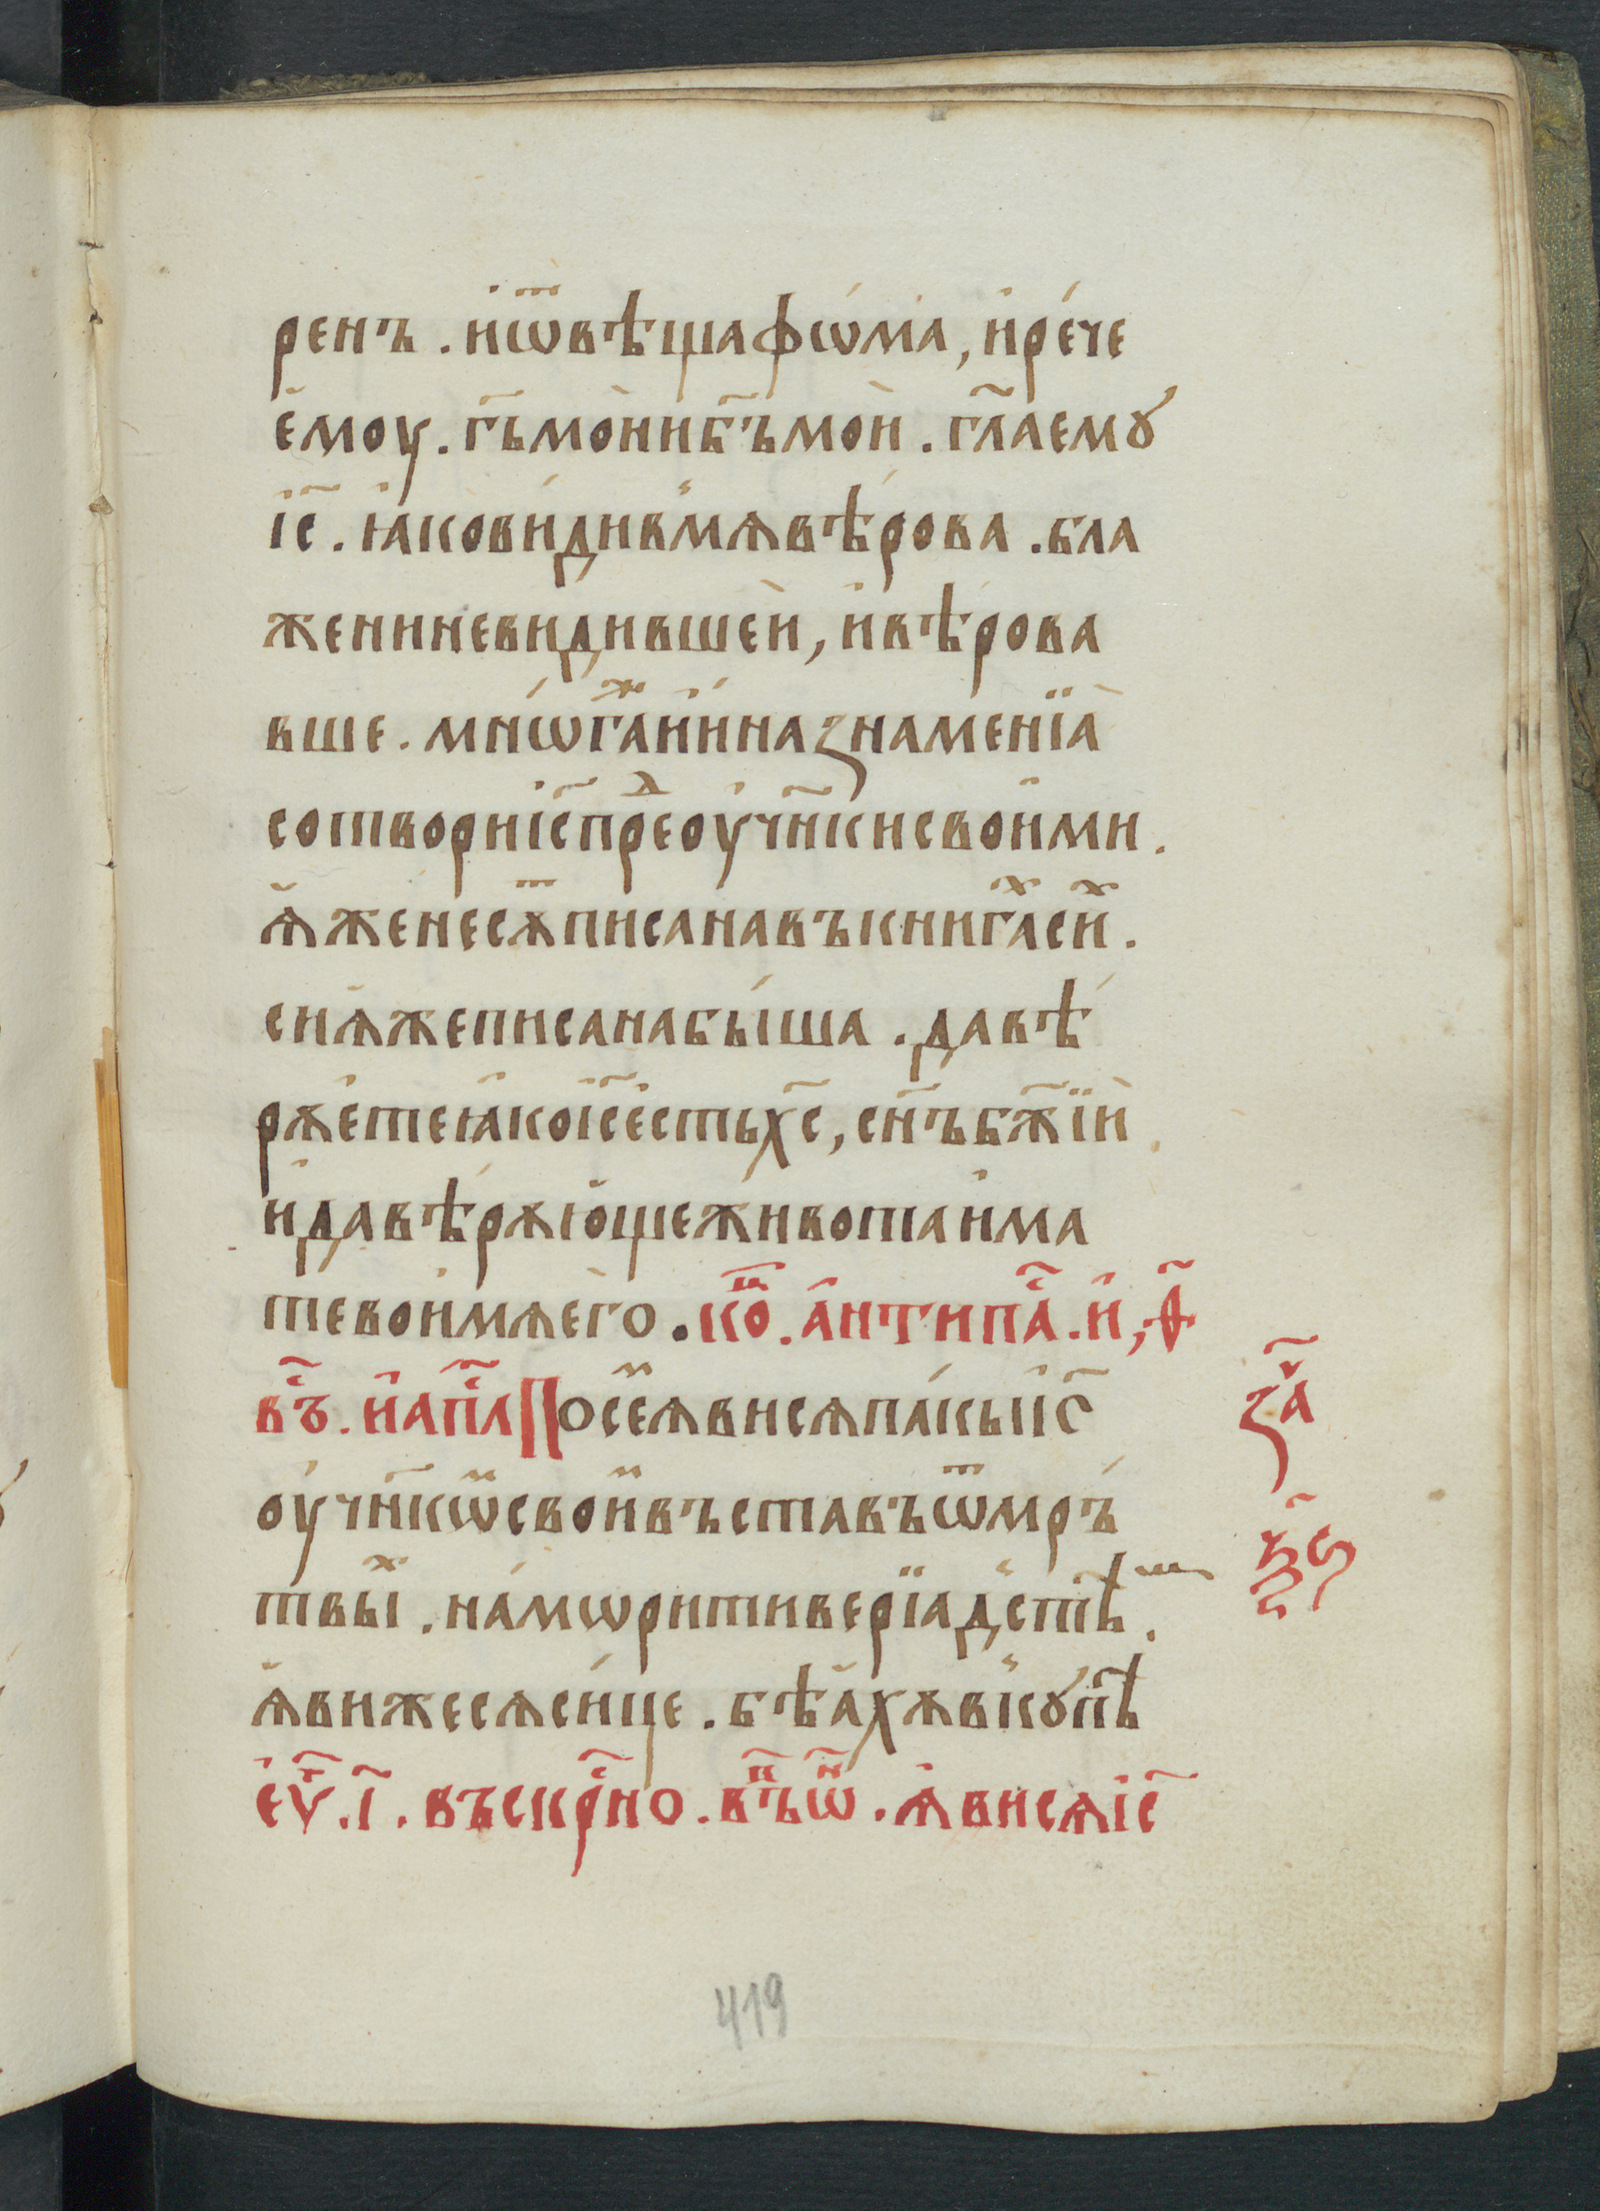 ренъ . и҆ѿвѣщафѡ́ма̀, и҆ре́че
є҆моу . гь҃мо̀нибъ҃мо̀и . гл҃аемꙋ
і҆с҃ . ꙗ҆кови́дивⸯмѧвѣ́рова . бла
жениневидившеи̇, и҆вѣ́рова
вше . мнѡ́гаⷤи҆и҆назнаменїа̀
сотвориі҆с҃преⷣоу҆чн҃кисвои҆ми .
ꙗ҆женесѫⷮписанавъкнигаⷯсиⷯ .
сиѧ҆жеписанабы́ша . давѣ́
рѫе҆теꙗ҆коі҆с҃е҆стьхс҃, сн҃ъбж҃їи .
и҆давѣ́рѫю҆щеживотаи҆ма
тевои҆мѧе҆го . коⷩ҇ . а҆нтипаⷭ҇ . и҆, ѵ҃
въⷭ҇ . и҆апⷭ҇л Посеⷨѧвисѧпа́кыі҆с҃
оу҆чн҃кѡⷨсвои҆ⷨвъставъѿмръ́
твыⷯ . на́мѡритиверїадⸯстѣⷨ .
ꙗ҆вижесѧси́це . бѣа҆хѫвⸯкꙋ́пѣ
заⷱ҇
ѯ҃ѕ
є҆ѵⷢ҇ . і҃ . въскрⷭ҇но . въⷩ҇ѿⷩ . ꙗ҆висѧі҆с҃
419